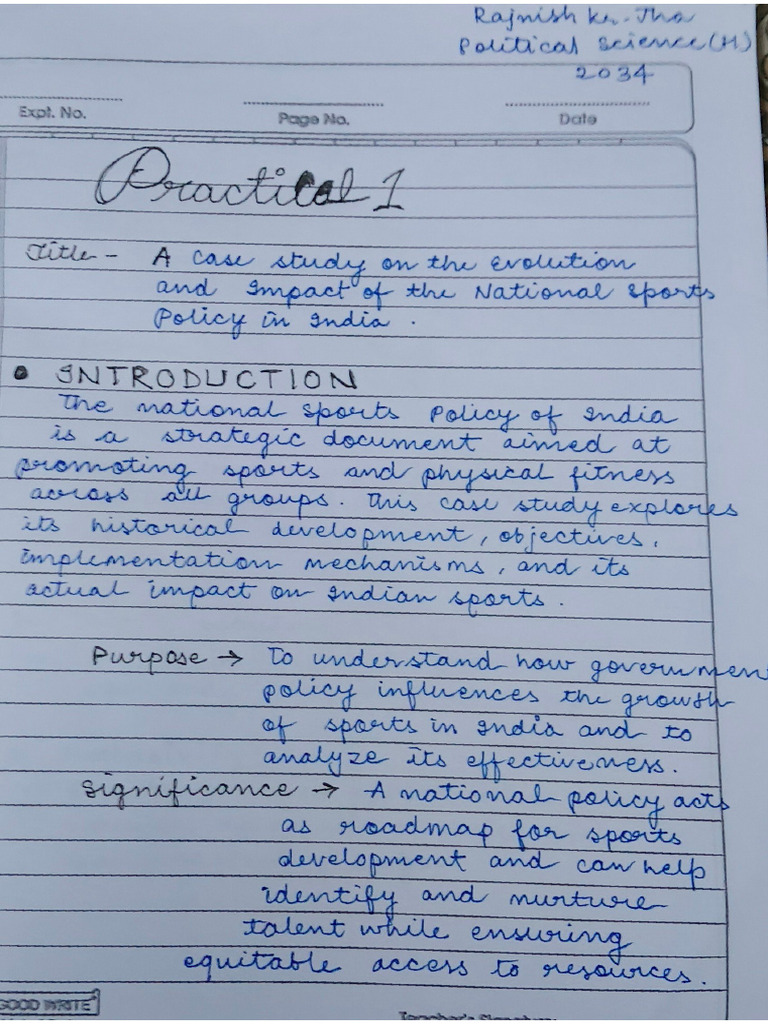 Rajnish kr. Jha
Political Science (H)
2034
Expt. No.
Page No.
Date
Practical 1
Title - A case study on the Evolution
and Impact of the National Sports
Policy in India.
• INTRODUCTION
The national sports Policy of India
is a strategic document aimed at
promoting sports and physical fitness
across all groups. This case study explores
its historical development, objectives,
implementation mechanisms, and its
actual impact on Indian sports.
Purpose → To understand how governmen
policy influences the growth
of sports in India and to
analyze its effectiveness.
Significance → A national policy acts
as roadmap for sports
development and can help
identify and nurture
talent while ensuring
equitable access to resources.
GOOD WRITE
Teacher's Signature